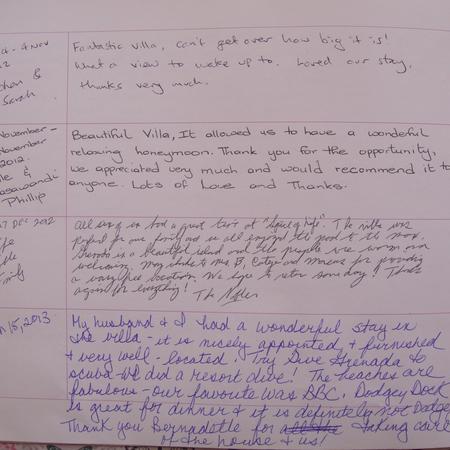 4 Nov
Fantastic Villa, can't get over how big it is!
What a view to wake up to. Loved our stay,
Sarah
thanks very much.
November -
November
2012.
Phillip
Beautiful Villa, It allowed us to have a wonderful
relaxing honeymoon. Thank you for the opportunity,
we appreciated very much and would recommend it to
anyone. Lots of Love and Thanks.
7 Dec 2012
Family
All six of us had a great time at "Spice of Life". The villa was
perfect for our family and we all enjoyed the pool to the max.
Grenada is a beautiful island and the people are warm and
welcoming. Many thanks to Mrs B, and for providing
a vacation. We hope to return some day! Thanks
again for everything! The
15, 2013
My husband & I had a wonderful stay in
the villa - it is nicely appointed & furnished
& very well-located. Try Dive Grenada to
scuba - we did a resort dive! The beaches are
fabulous - our favorite was BBC. Dodgey Dock
is great for dinner & it is definitely not Dodgey
Thank you Bernadette for taking care
of the house & us!